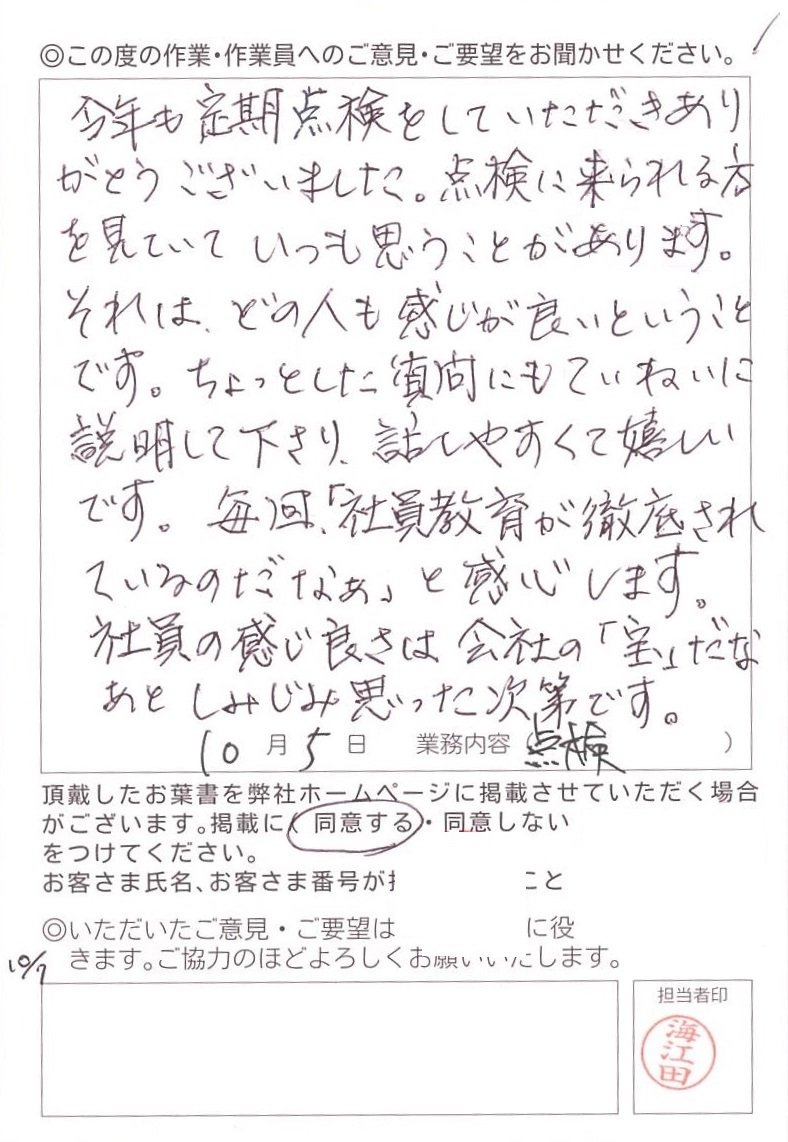 ◎この度の作業・作業員へのご意見・ご要望をお聞かせください。
今年も定期点検をしていただきあり
がとうございました。点検に来られる方
を見ていていつも思うことがあります。
それは、どの人も感じが良いということ
です。ちょっとした質問にもていねいに
説明して下さり、話しやすくて嬉しい
です。毎回、「社員教育が徹底され
ているのだなぁ」と感心します。
社員の感じ良さは会社の「宝」だな
あとしみじみ思った次第です。
10月5日 業務内容(点検)
頂戴したお葉書を弊社ホームページに掲載させていただく場合
がございます。掲載に( 同意する・同意しない
をつけてください。
お客さま氏名、お客さま番号が こと
◎いただいたご意見・ご要望は に役
きます。ご協力のほどよろしくお願いいたします。
10/7
担当者印
海江田